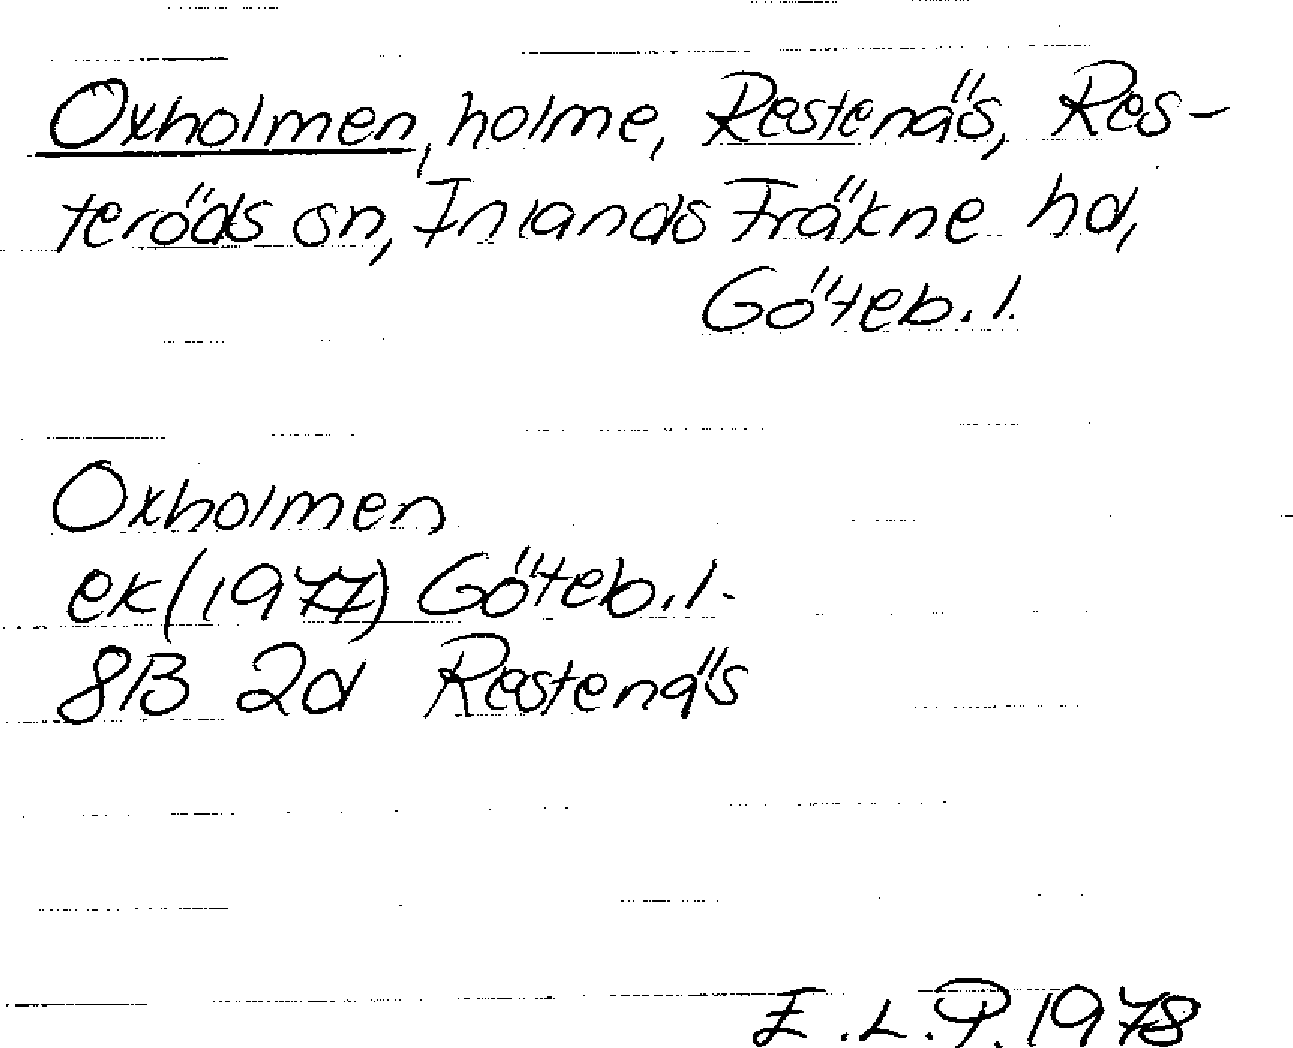 Oxholmen, holme, Restenäs, Res-
teröds sn, Inlands Fräkne hd,
Göteb. l.
Oxholmen
ek (1977) Göteb. l.
8B 2d Restenäs
E.L.P. 1978